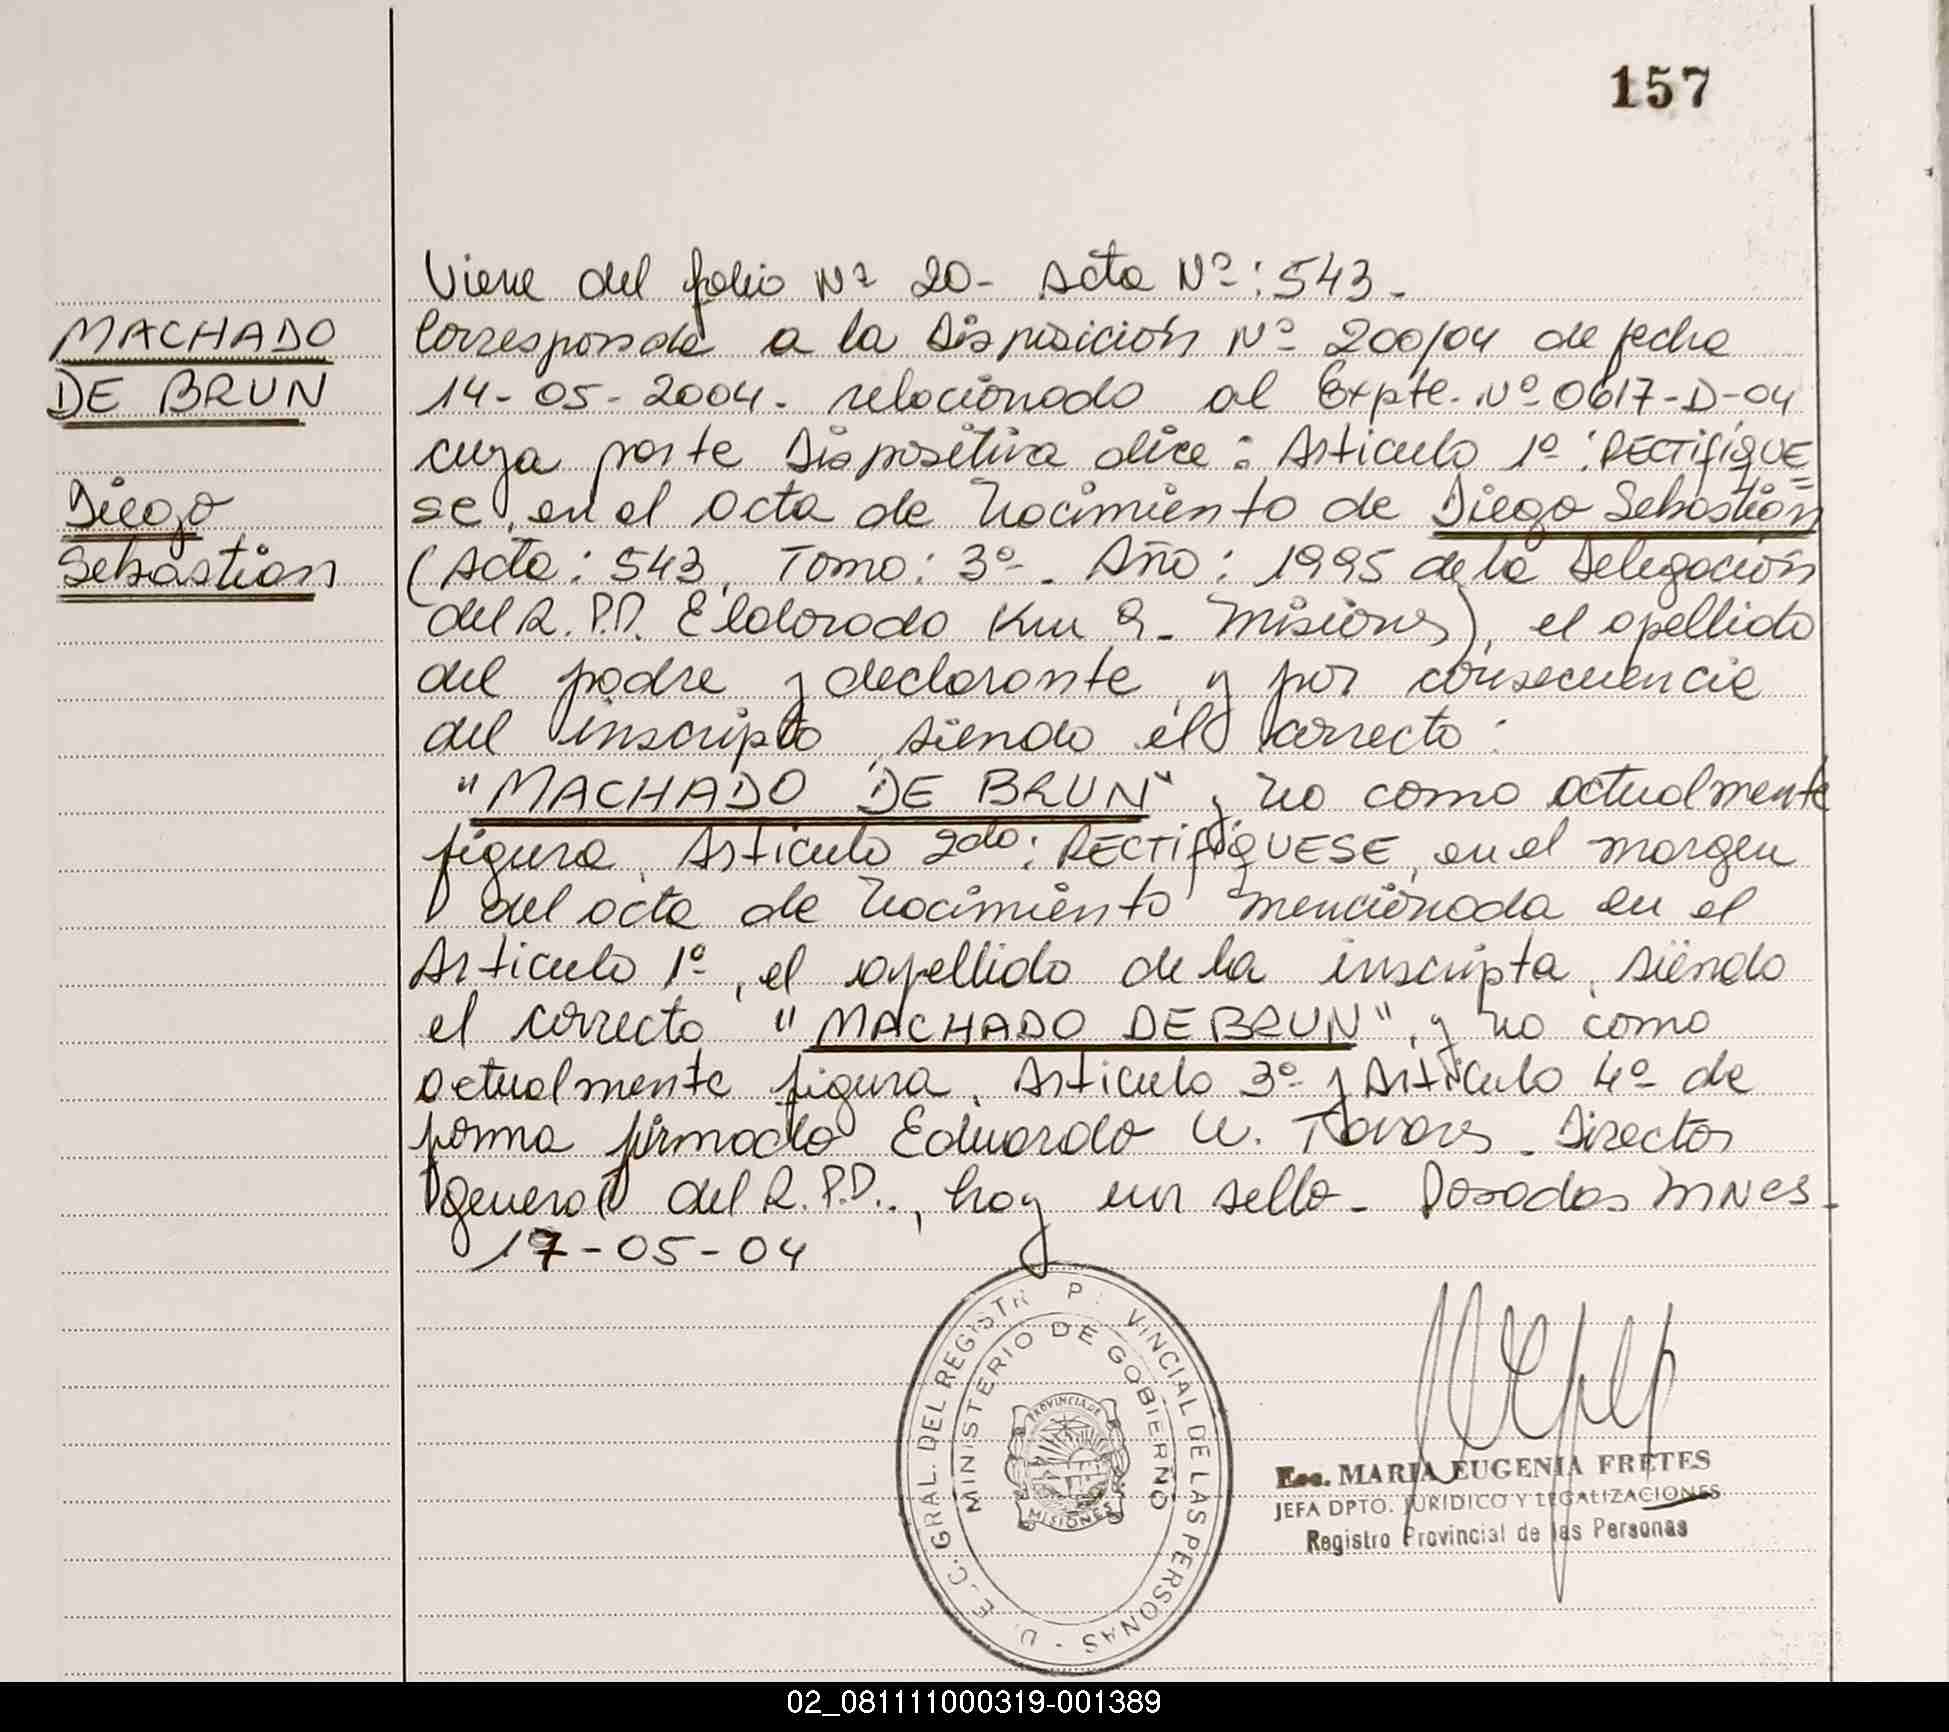 157
MACHADO
DE BRUN
Diego
Sebastian
Viene del folio Nº 20- Acta Nº: 543.
Corresponde a la Disposición Nº 200/04 de fecha
14-05-2004. relacionado al Expte. Nº 0617-D-04
cuya parte Dispositiva dice: Articulo 1º: RECTIFIQUE=
se, en el acta de Nacimiento de Diego Sebastián
(Acta: 543, Tomo: 3º. Año: 1995 de la Delegación
del R.P.P. Eldorado Km 9- Misiones), el apellido
del padre y declarante, y por consecuencia
del inscripto, siendo él correcto:
"MACHADO DE BRUN" y no como actualmente
figura. Articulo 2do: RECTIFIQUESE, en el margen
del acta de Nacimiento mencionada en el
Articulo 1º, el apellido de la inscripta, siendo
el correcto "MACHADO DE BRUN", y no como
actualmente figura. Articulo 3º y Articulo 4º de
forma firmado Eduardo W. Director
general del R.P.P., hay un sello- Posadas MNES.
17-05-04
GRAL. DEL REGISTR P VINCIAL DE LAS PERSONAS
MINISTERIO DE GOBIERNO
PROVINCIA DE
MISIONES
Esc. MARIA EUGENIA FRETES
JEFA DPTO. JURIDICO Y LEGALIZACIONES
Registro Provincial de las Personas
02_081111000319-001389